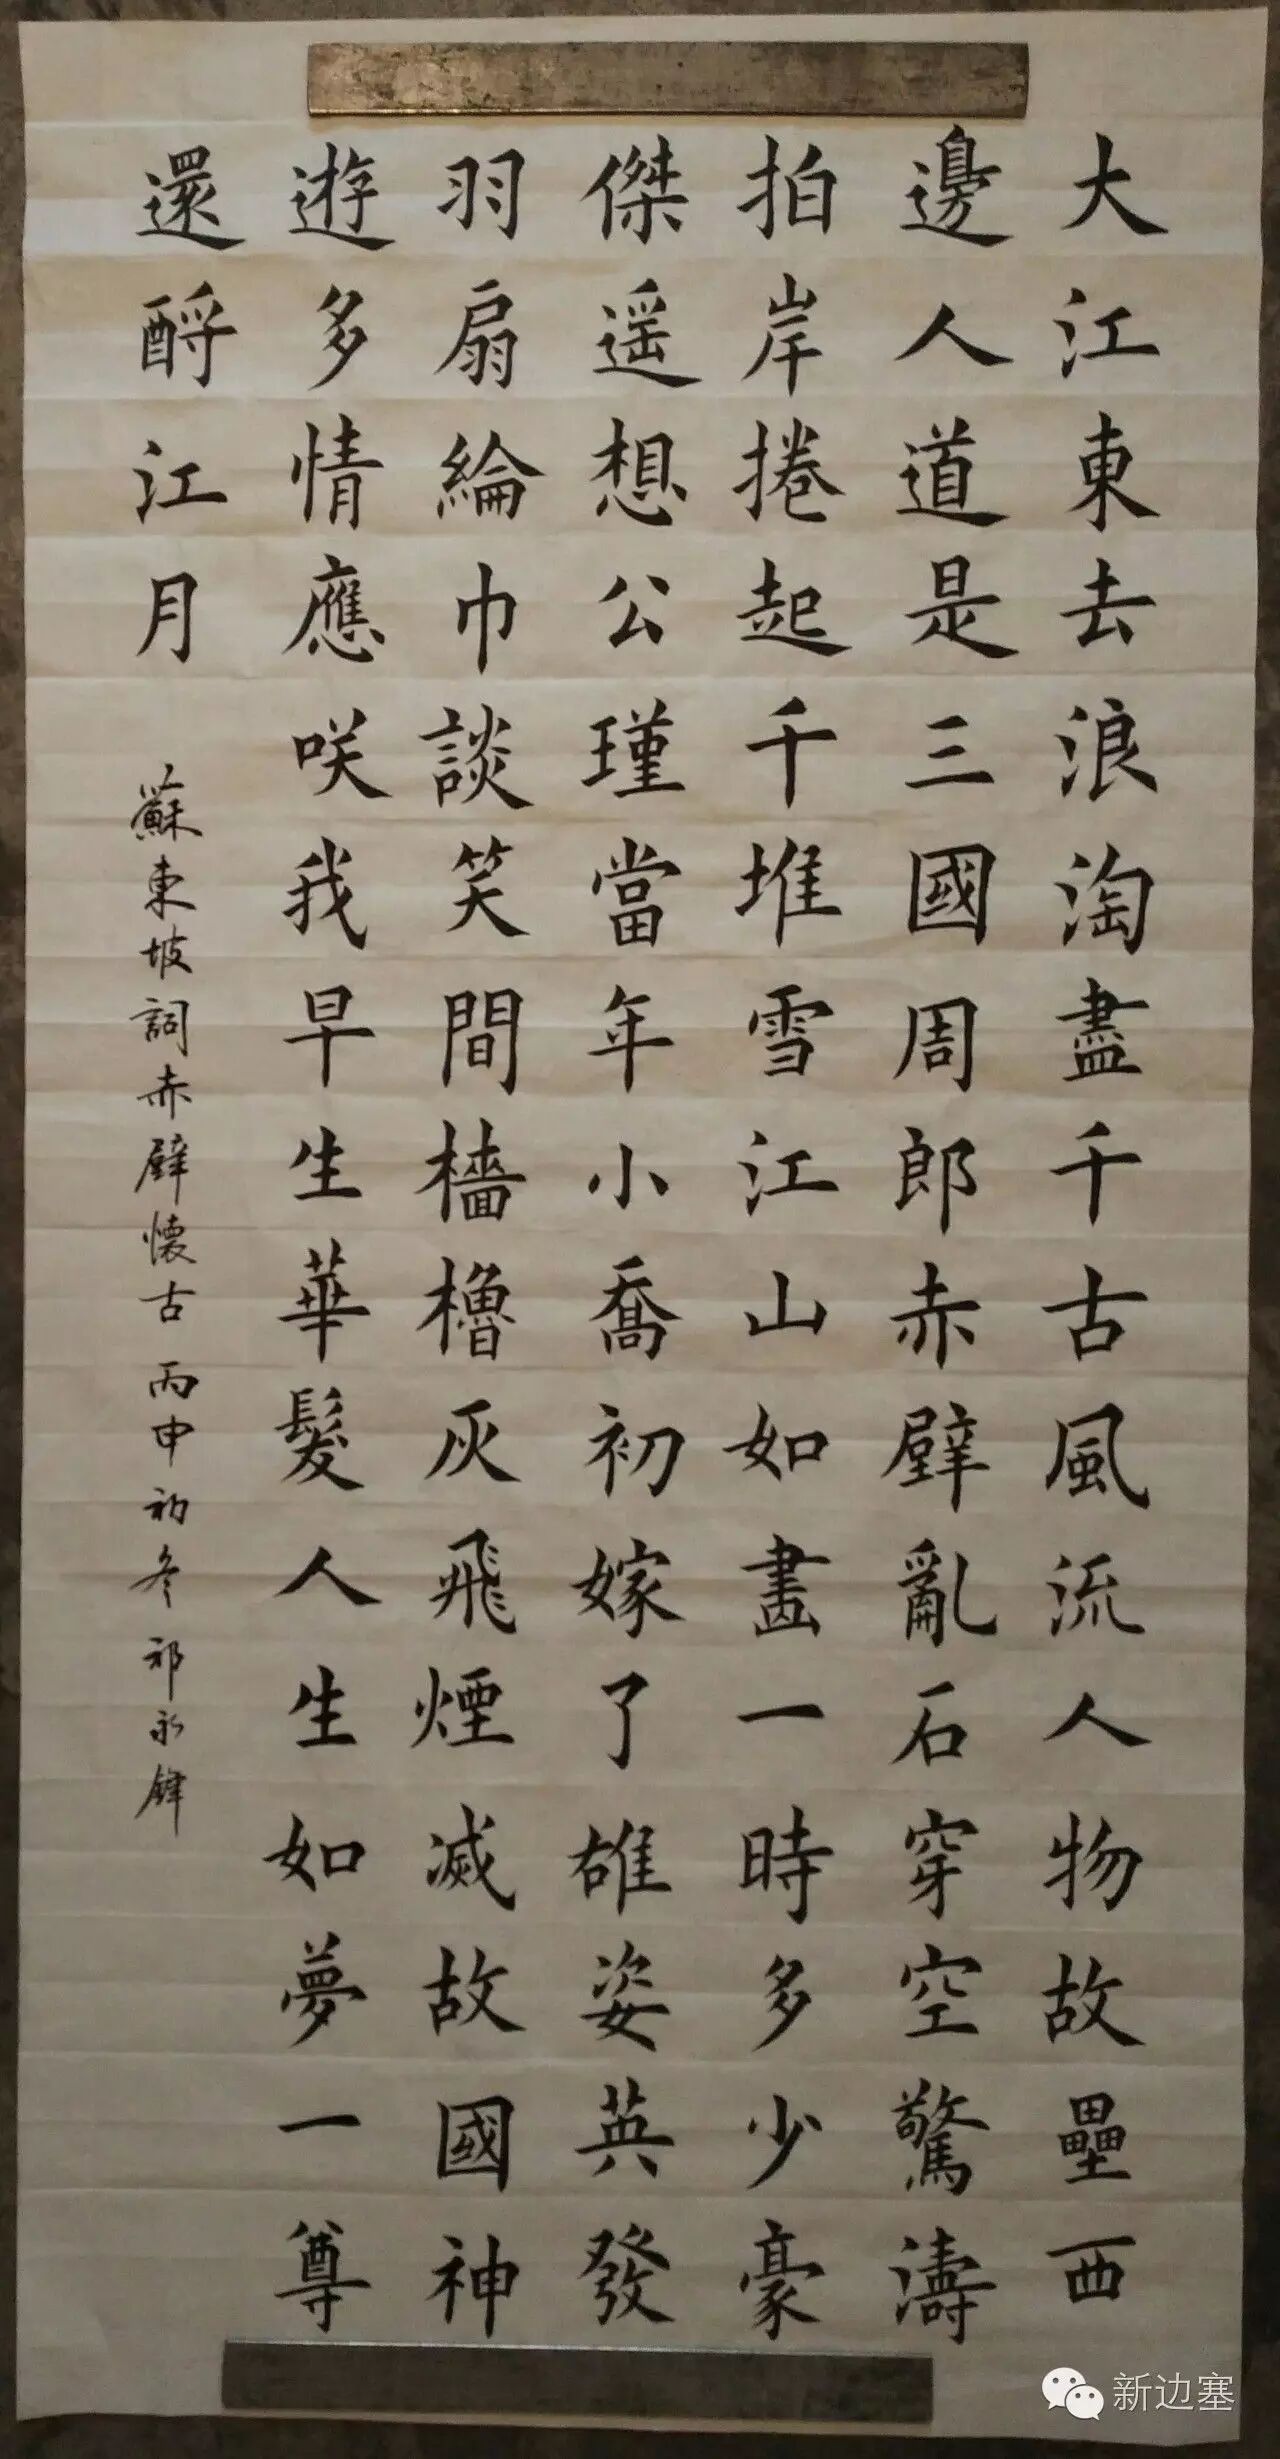 大江東去浪淘盡千古風流人物故壘西
邊人道是三國周郎赤壁亂石穿空驚濤
拍岸捲起千堆雪江山如畫一時多少豪
傑遥想公瑾當年小喬初嫁了雄姿英發
羽扇綸巾談笑間檣櫓灰飛煙滅故國神
遊多情應咲我早生華髮人生如夢一尊
還酹江月
蘇東坡詞赤壁懷古丙申初冬祁永鋒
新边塞